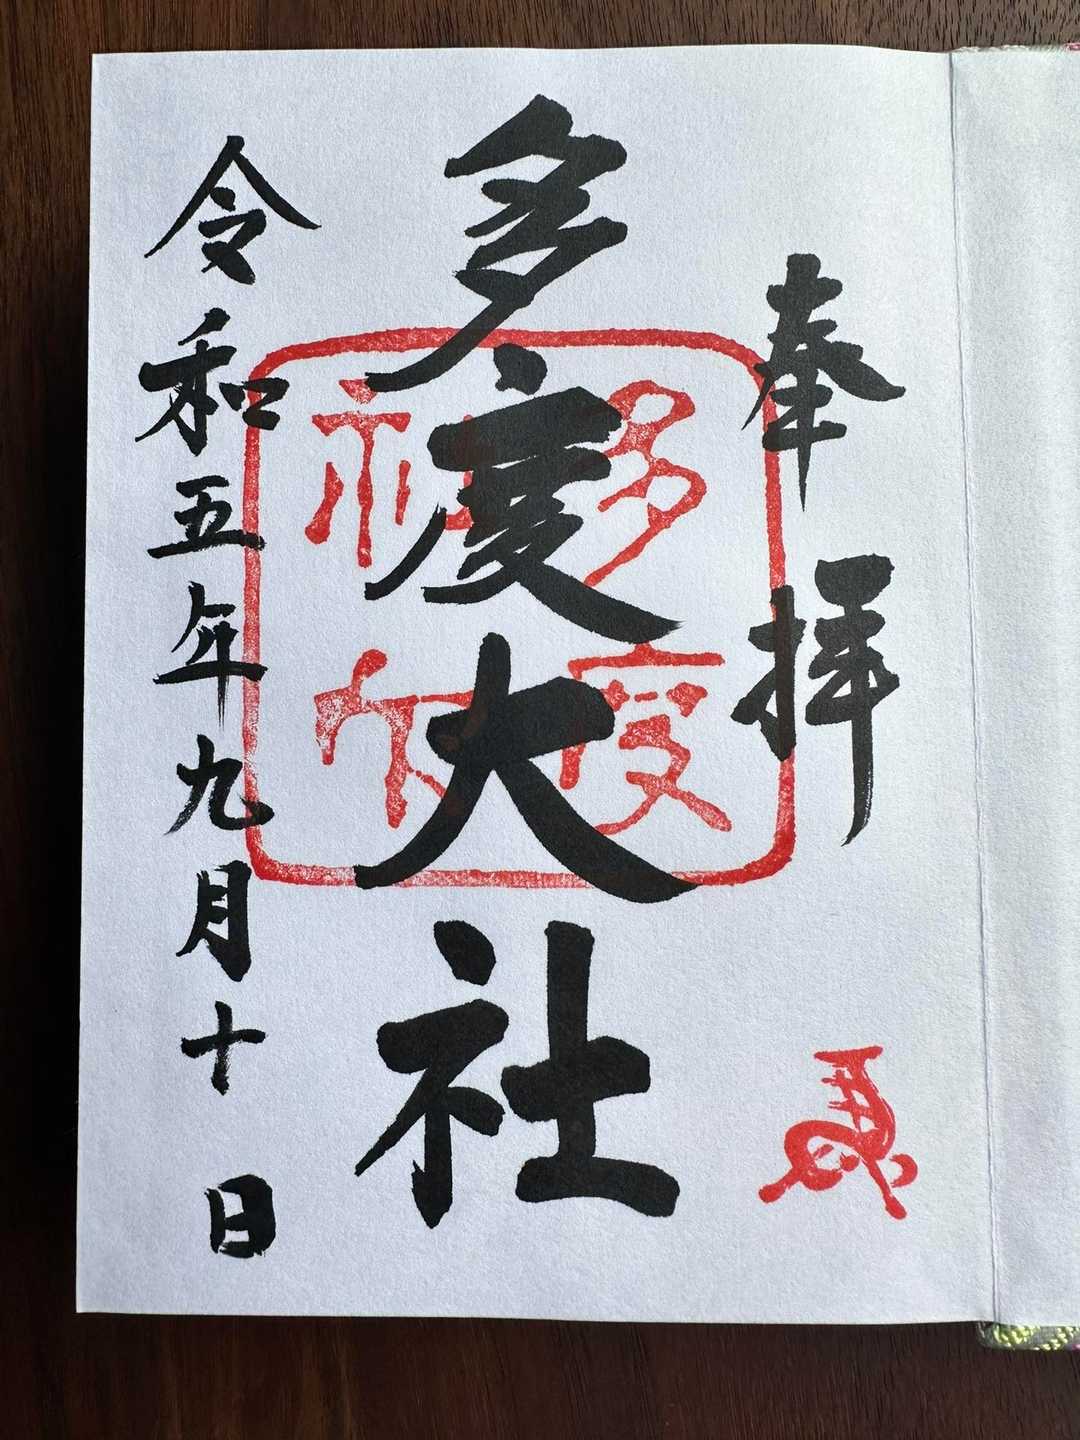 奉拝
多度大社
令和五年九月十日
多度
神社
馬